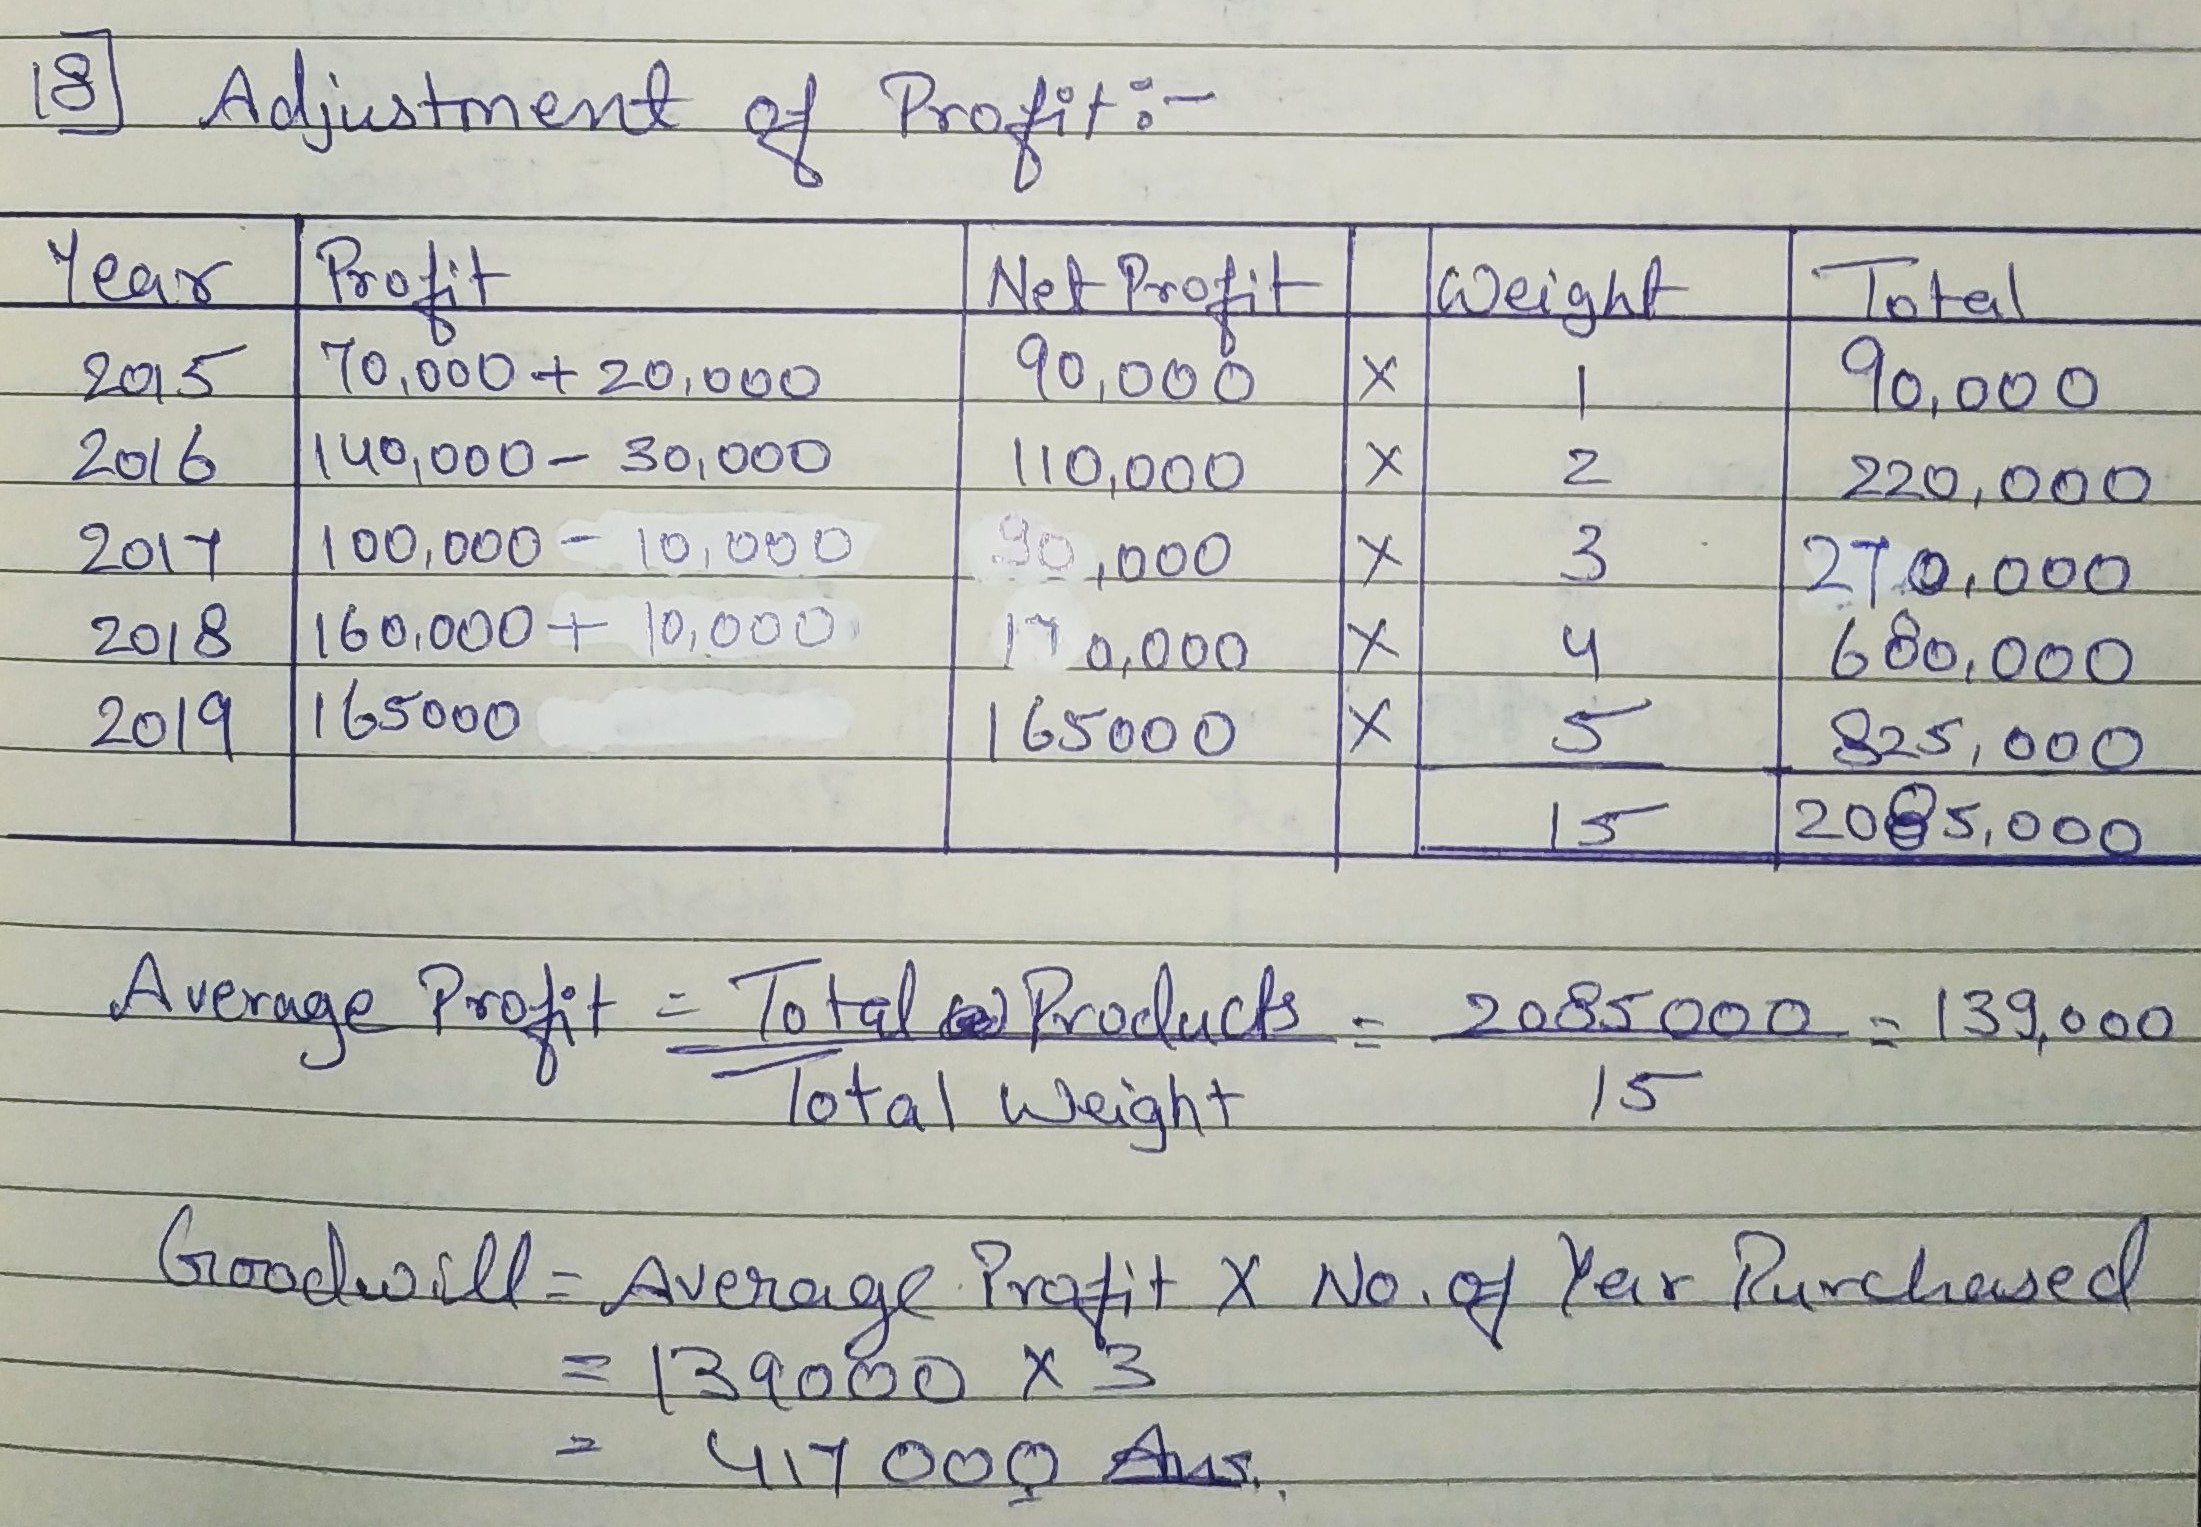 18] Adjustment of Profit:-
Year Profit Net Profit Weight Total
2015 70,000 + 20,000 90,000 × 1 90,000
2016 140,000 - 30,000 110,000 × 2 220,000
2017 100,000 - 10,000 90,000 × 3 270,000
2018 160,000 + 10,000 170,000 × 4 680,000
2019 165000 165000 × 5 825,000
15 2085,000
Average Profit = Total Products = 2085000 = 139,000
Total Weight 15
Goodwill = Average Profit × No. of Year Purchased
= 139000 × 3
= 417000 Ans.